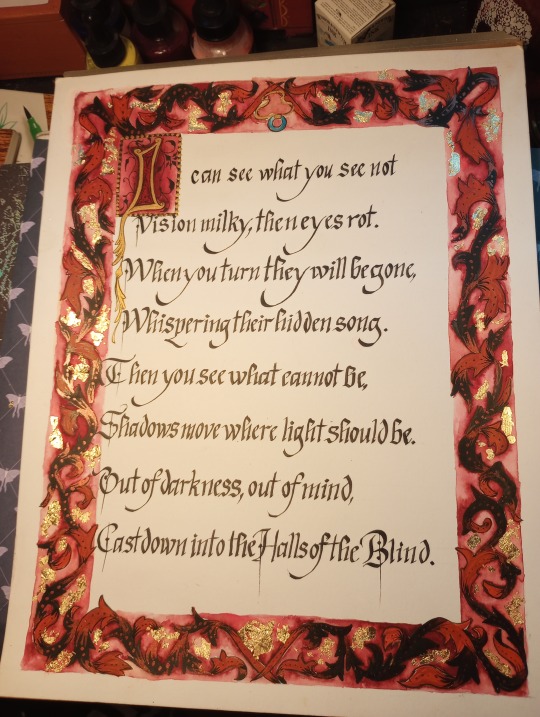 I can see what you see not
Vision milky, then eyes rot.
When you turn they will be gone,
Whispering their hidden song.
Then you see what cannot be,
Shadows move where light should be.
Out of darkness, out of mind,
Cast down into the Halls of the Blind.